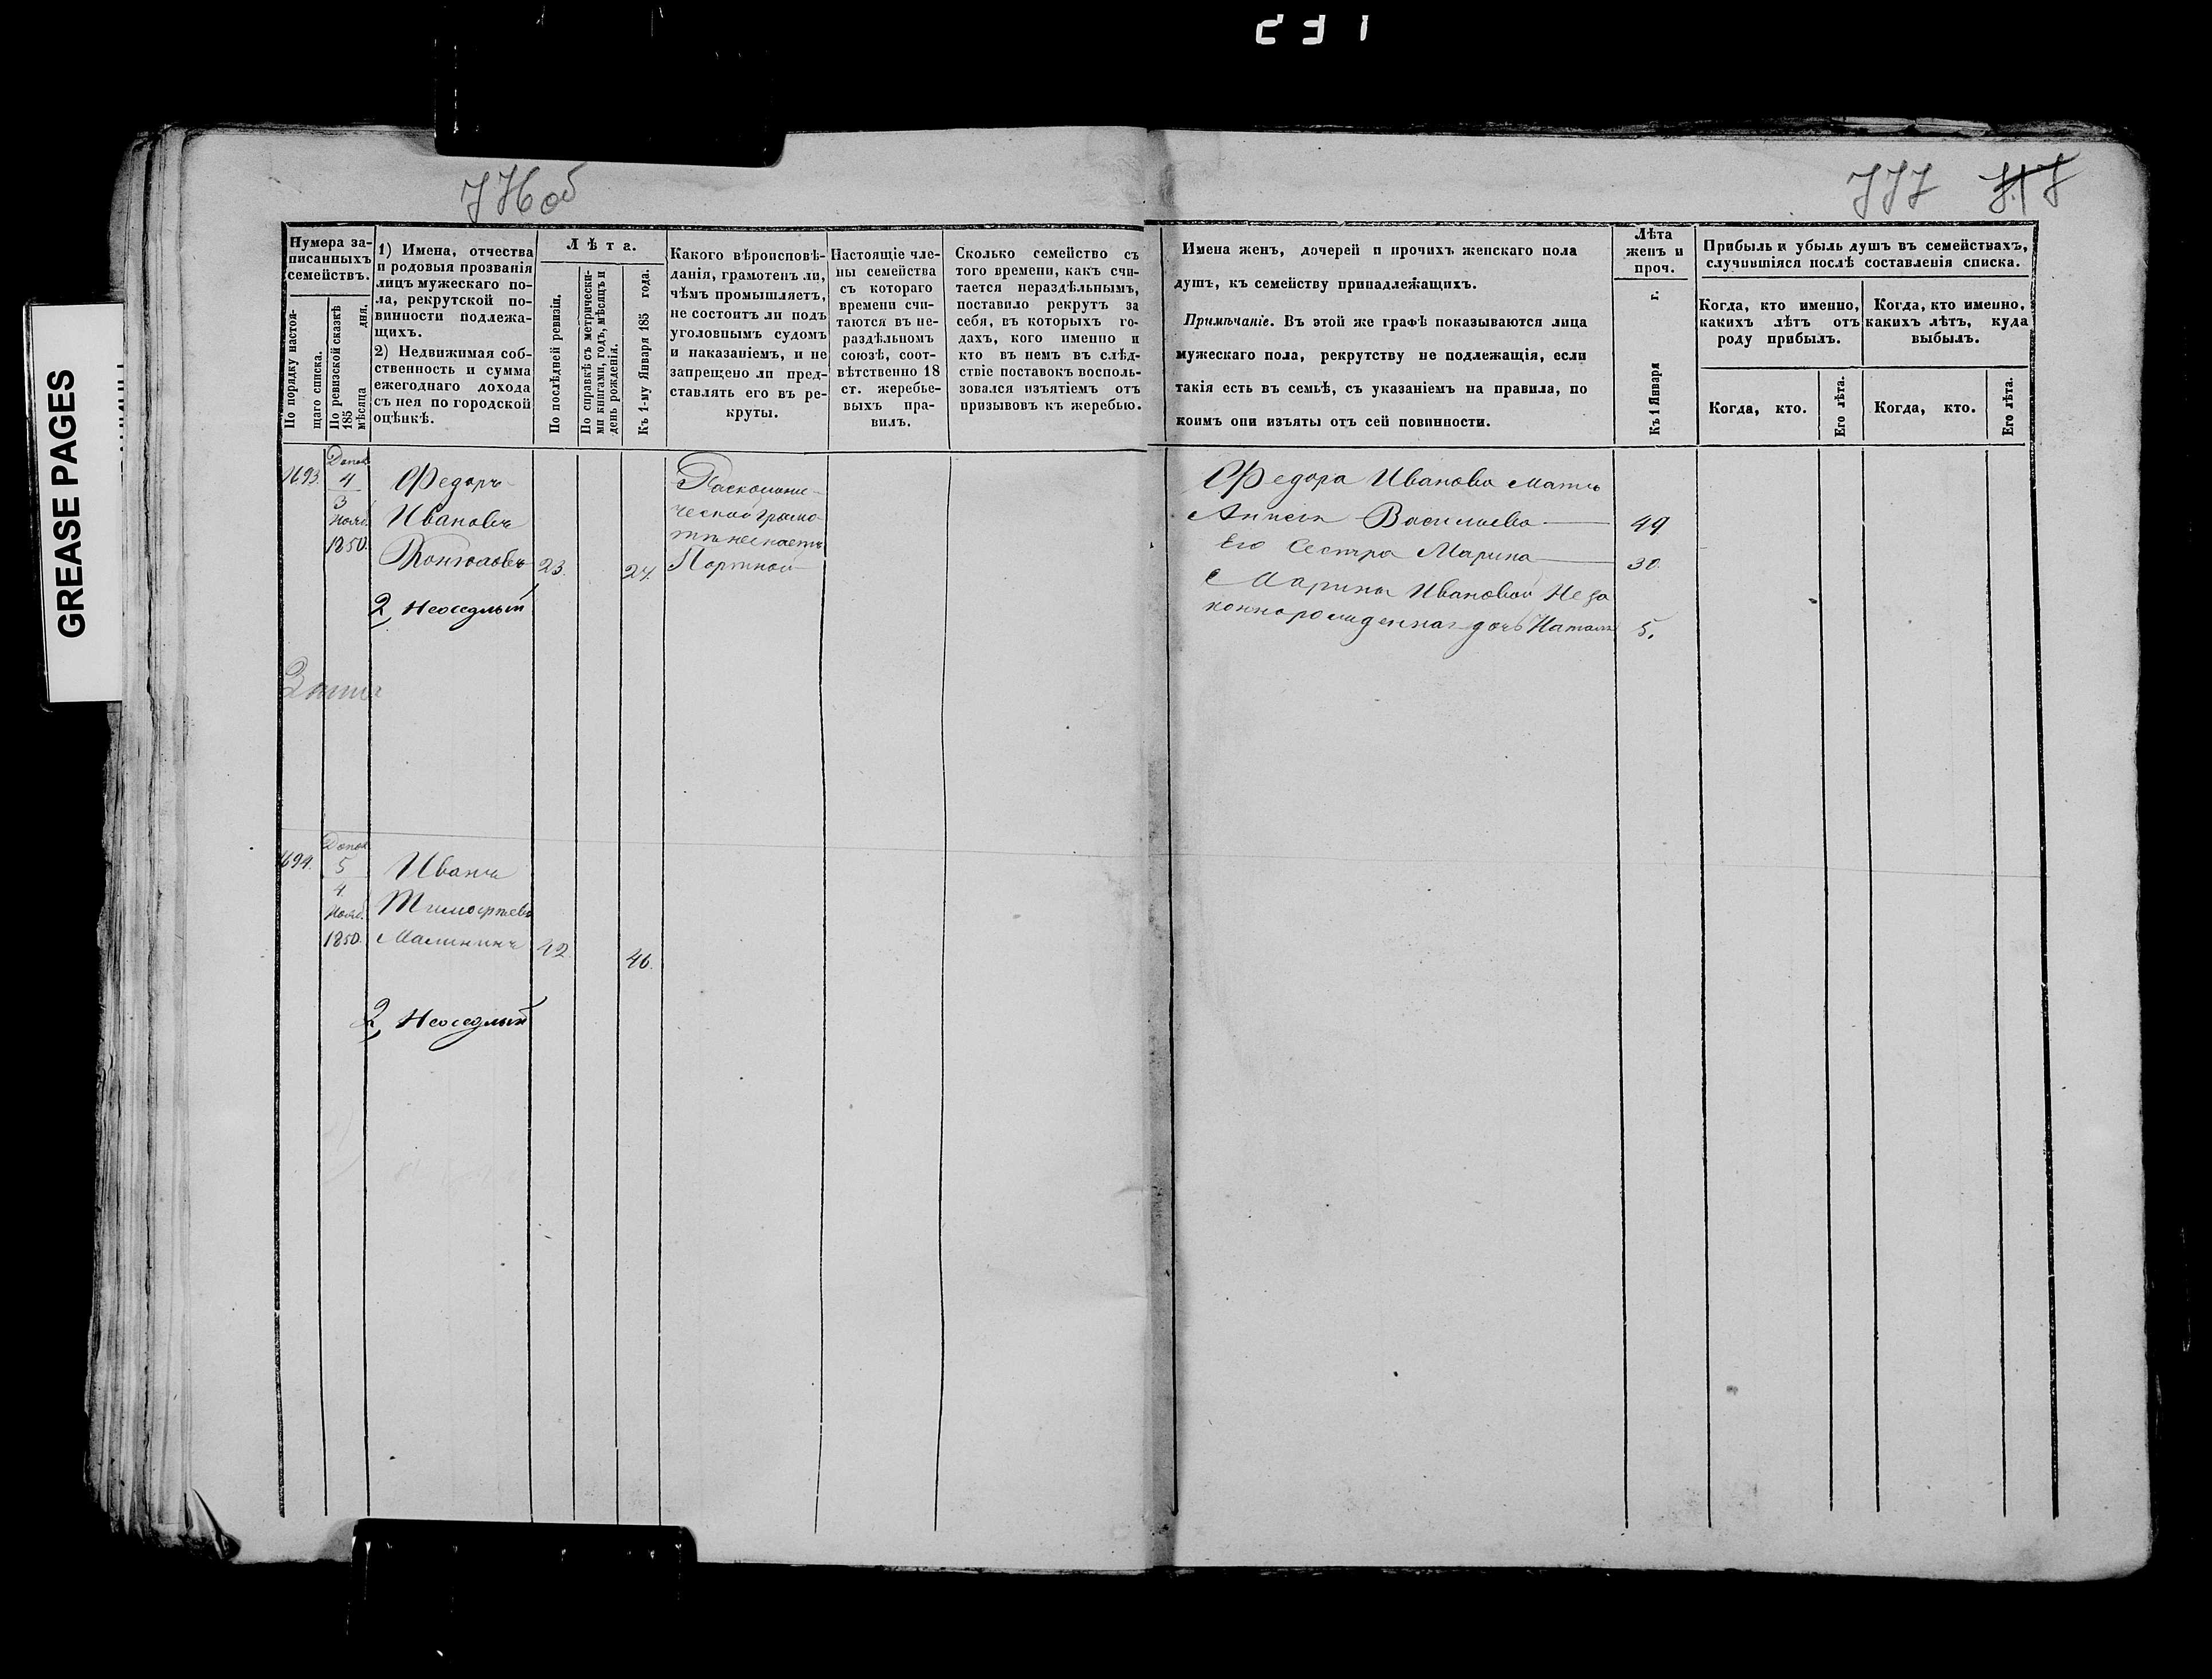 231
GREASE PAGES
776 об
777
Нумера за-
писанныхъ
семействъ.
По порядку настоя-
щаго списка.
По ревизской сказкѣ
185 мѣсяца дня.
1) Имена, отчества
и родовыя прозванія
лицъ мужескаго по-
ла, рекрутской по-
винности подлежа-
щихъ.
2) Недвижимая соб-
ственность и сумма
ежегоднаго дохода
съ нея по городской
оцѣнкѣ.
Лѣта.
По послѣдней ревизіи.
По справкѣ съ метрически-
ми книгами, годъ, мѣсяцъ и
день рожденія.
Къ 1-му Января 185 года.
Какого вѣроисповѣ-
данія, грамотенъ ли,
чѣмъ промышляетъ,
не состоитъ ли подъ
уголовнымъ судомъ
и наказаніемъ, и не
запрещено ли пред-
ставлять его въ ре-
круты.
Настоящіе чле-
ны семейства
съ котораго
времени счи-
таются въ не-
раздѣльномъ
союзѣ, соот-
вѣтственно 18
ст. жеребье-
выхъ пра-
вилъ.
Сколько семейство съ
того времени, какъ счи-
тается нераздѣльнымъ,
поставило рекрутъ за
себя, въ которыхъ го-
дахъ, кого именно и
кто въ немъ въ слѣд-
ствіе поставокъ восполь-
зовался изъятіемъ отъ
призывовъ къ жеребью.
Имена женъ, дочерей и прочихъ женскаго пола
душъ, къ семейству принадлежащихъ.
Примѣчаніе. Въ этой же графѣ показываются лица
мужескаго пола, рекрутству не подлежащія, если
такія есть въ семьѣ, съ указаніемъ на правила, по
коимъ они изъяты отъ сей повинности.
Лѣта
женъ и
проч.
Къ 1 Января г.
Прибыль и убыль душъ въ семействахъ,
случившіяся послѣ составленія списка.
Когда, кто именно,
какихъ лѣтъ отъ
роду прибылъ.
Когда, кто именно,
какихъ лѣтъ, куда
выбылъ.
Когда, кто.
Его лѣта.
Когда, кто.
Его лѣта.
1693.
Допол.
4
3
Нояб.
1850.
Федоръ
Ивановъ
23.
27.
2, Неоседлый
Грамо-
тѣ не знаетъ
Портной
Федора Иванова мать
Анисья Васильева 49
Его Сестра Марина 30.
Марины Ивановой Неза
коннорожденная дочь Наталья 5.
1694.
Допол.
5
4
Нояб.
1850.
Иванъ
Тимофѣевъ
Малининъ 42
46.
2, Неоседлый